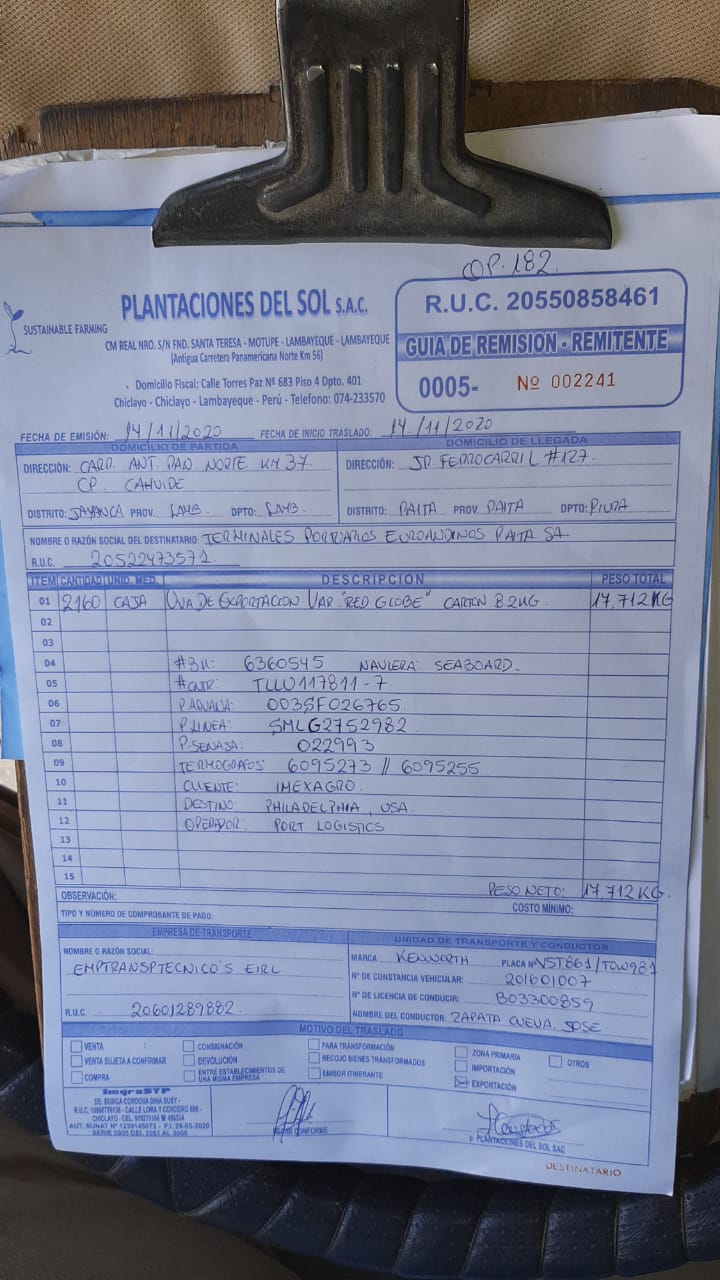 OP. 182.
SUSTAINABLE FARMING
PLANTACIONES DEL SOL S.A.C.
CM REAL NRO. S/N FND. SANTA TERESA - MOTUPE - LAMBAYEQUE - LAMBAYEQUE
(Antigua Carretera Panamericana Norte Km 56)
Domicilio Fiscal: Calle Torres Paz Nº 683 Piso 4 Dpto. 401
Chiclayo - Chiclayo - Lambayeque - Perú - Telefono: 074-233570
R.U.C. 20550858461
GUIA DE REMISION - REMITENTE
0005- Nº 002241
FECHA DE EMISIÓN: 14/11/2020 FECHA DE INICIO TRASLADO: 14/11/2020
DOMICILIO DE PARTIDA
DIRECCIÓN: CARR. ANT. PAN. NORTE KM 37.
CP. CAHUIDE
DISTRITO: JAYANCA PROV. LAMB. DPTO: LAMB.
DOMICILIO DE LLEGADA
DIRECCIÓN: JR. FERROCARRIL #127.
DISTRITO: PAITA PROV. PAITA DPTO: PIURA
NOMBRE O RAZÓN SOCIAL DEL DESTINATARIO: TERMINALES PORTUARIOS EUROANDINOS PAITA SA.
R.U.C. 20522473571.
ITEM CANTIDAD UNID. MED. DESCRIPCION PESO TOTAL
01 2160 CAJA UVA DE EXPORTACION VAR. "RED GLOBE" CARTON 8.2KG. 17,712 KG
02
03
04 #BK: 6360545 NAVIERA: SEABOARD.
05 #CNTR: TLLU117811-7.
06 P.ADUANA: 003SF026765.
07 P.LINEA: SMLG2752982
08 P.SENASA: 022993
09 TERMOGRAFOS: 6095273 // 6095255
10 CLIENTE: IMEXAGRO.
11 DESTINO: PHILADELPHIA, USA.
12 OPERADOR: PORT LOGISTICS
13
14
15 PESO NETO: 17,712 KG.
OBSERVACIÓN:
COSTO MÍNIMO:
TIPO Y NÚMERO DE COMPROBANTE DE PAGO:
EMPRESA DE TRANSPORTE
NOMBRE O RAZÓN SOCIAL:
EMPTRANSPTECNICO'S EIRL
R.U.C. 20601289882.
UNIDAD DE TRANSPORTE Y CONDUCTOR
MARCA KENWORTH PLACA Nº
Nº DE CONSTANCIA VEHICULAR: 201601007
Nº DE LICENCIA DE CONDUCIR: B03300859
NOMBRE DEL CONDUCTOR: ZAPATA CUEVA, JOSE
MOTIVO DEL TRASLADO
VENTA
VENTA SUJETA A CONFIRMAR
COMPRA
CONSIGNACIÓN
DEVOLUCIÓN
ENTRE ESTABLECIMIENTOS DE
UNA MISMA EMPRESA
PARA TRANSFORMACIÓN
RECOJO BIENES TRANSFORMADOS
EMISOR ITINERANTE
ZONA PRIMARIA
IMPORTACIÓN
EXPORTACIÓN
OTROS
ImgraSYP
DE: BURGA CORDOVA DINA SUSY -
CHICLAYO - CEL.
AUT. SUNAT Nº 1239146073 - F.I. 28-05-2020
SERIE 0005 DEL 2051 AL 3050
RECIBI CONFORME
p. PLANTACIONES DEL SOL SAC
DESTINATARIO